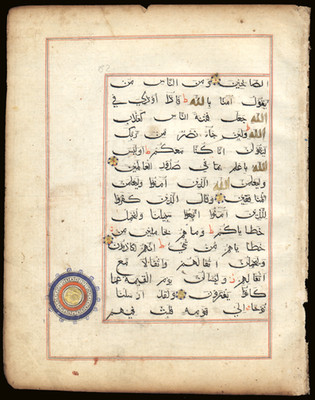 الصالحين ومن الناس من
يقول امنا بالله فاذا اوذي في
الله جعل فتنة الناس كعذاب
الله ولئن جاء نصر من ربك
ليقولن انا كنا معكم اوليس
الله باعلم بما في صدور العالمين
وليعلمن الله الذين امنوا وليعلمن
المنافقين وقال الذين كفروا
للذين امنوا اتبعوا سبيلنا ولنحمل
خطاياكم وما هم بحاملين من
خطاياهم من شيء انهم لكاذبون
وليحملن اثقالهم واثقالا مع
اثقالهم وليسئلن يوم القيمة عما
كانوا يفترون ولقد ارسلنا
نوحا الى قومه فلبث فيهم